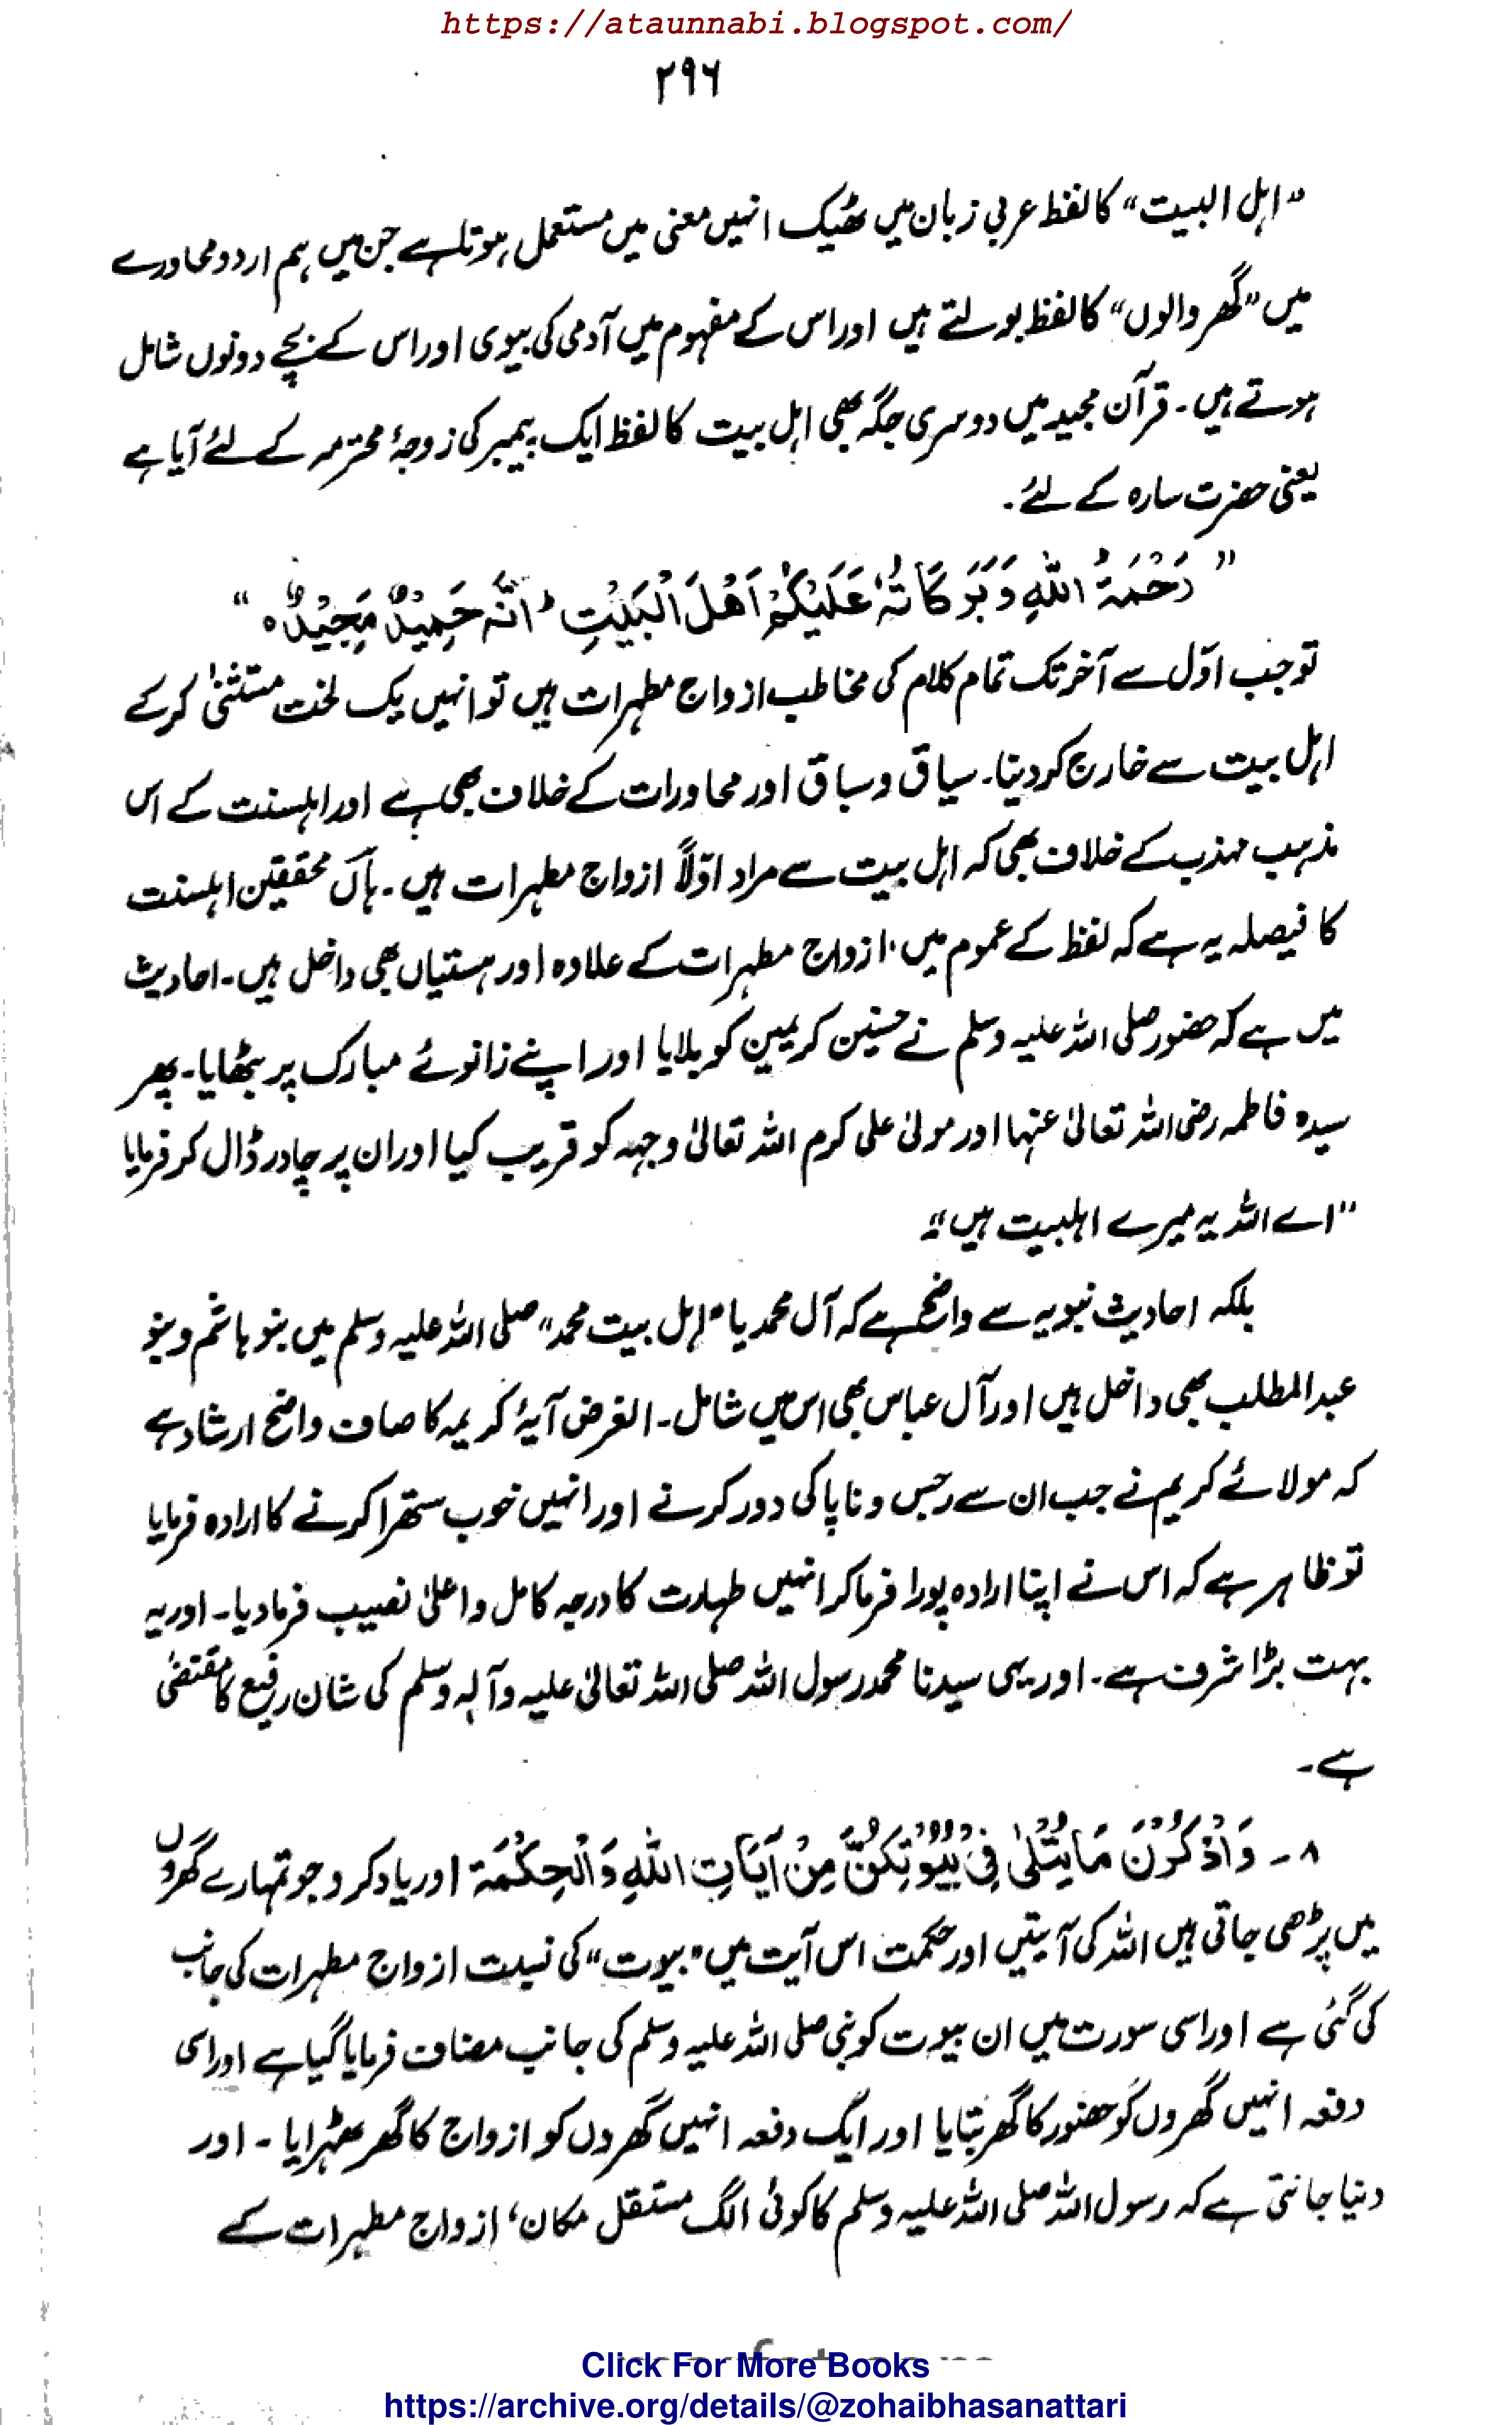 https://ataunnabi.blogspot.com/
۲۹۶
"اہل البیت" کا لفظ عربی زبان میں ٹھیک انہیں معنی میں مستعمل ہوتا ہے جن میں ہم اردو محاورے
میں "گھر والوں" کا لفظ بولتے ہیں اور اس کے مفہوم میں آدمی کی بیوی اور اس کے بچے دونوں شامل
ہوتے ہیں۔ قرآن مجید میں دوسری جگہ بھی اہل بیت کا لفظ ایک پیمبر کی زوجۂ محترمہ کے لئے آیا ہے
یعنی حضرت سارہ کے لئے۔
" رَحْمَۃُ اللّٰہِ وَبَرَکَاتُہٗ عَلَیْکُمْ اَھْلَ الْبَیْتِ ؕ اِنَّہٗ حَمِیْدٌ مَّجِیْدٌ ہ "
تو جب اوّل سے آخر تک تمام کلام کی مخاطب ازواج مطہرات ہیں تو انہیں یک لخت مستثنیٰ کر کے
اہل بیت سے خارج کر دینا۔ سیاق و سباق اور محاورات کے خلاف بھی ہے اور اہلسنت کے اس
مذہب مہذب کے خلاف بھی کہ اہل بیت سے مراد اوّلاً ازواج مطہرات ہیں۔ ہاں محققین اہلسنت
کا فیصلہ یہ ہے کہ لفظ کے عموم میں، ازواج مطہرات کے علاوہ اور ہستیاں بھی داخل ہیں۔ احادیث
میں ہے کہ حضور صلی اللہ علیہ وسلم نے حسنین کریمین کو بلایا اور اپنے زانوئے مبارک پر بٹھایا۔ پھر
سیدہ فاطمہ رضی اللہ تعالیٰ عنہا اور مولیٰ علی کرم اللہ تعالیٰ وجہہ کو قریب کیا اور ان پر چادر ڈال کر فرمایا
"اے اللہ یہ میرے اہلبیت ہیں"۔
بلکہ احادیث نبویہ سے واضح ہے کہ آل محمد یا "اہل بیت محمد" صلی اللہ علیہ وسلم میں بنو ہاشم و بنو
عبدالمطلب بھی داخل ہیں اور آل عباس بھی اس میں شامل۔ الغرض آیۂ کریمہ کا صاف واضح ارشاد ہے
کہ مولائے کریم نے جب ان سے رجس و ناپاکی دور کرنے اور انہیں خوب ستھرا کرنے کا ارادہ فرمایا
تو ظاہر ہے کہ اس نے اپنا ارادہ پورا فرما کر انہیں طہارت کا درجہ کامل و اعلیٰ نصیب فرما دیا۔ اور یہ
بہت بڑا شرف ہے۔ اور یہی سیدنا محمد رسول اللہ صلی اللہ تعالیٰ علیہ وآلہٖ وسلم کی شان رفیع کا مقتضیٰ
ہے۔
۸۔ وَاذْکُرْنَ مَا یُتْلٰی فِیْ بُیُوْتِکُنَّ مِنْ آیَاتِ اللّٰہِ وَالْحِکْمَۃ اور یاد کرو جو تمہارے گھروں
میں پڑھی جاتی ہیں اللہ کی آیتیں اور حکمت اس آیت میں "بیوت" کی نسبت ازواج مطہرات کی جانب
کی گئی ہے اور اسی سورت میں ان بیوت کو نبی صلی اللہ علیہ وسلم کی جانب مضاف فرمایا گیا ہے اور اسی
دفعہ انہیں گھروں کو حضور کا گھر بتایا اور ایک دفعہ انہیں گھروں کو ازواج کا گھر ٹھہرایا۔ اور
دنیا جانتی ہے کہ رسول اللہ صلی اللہ علیہ وسلم کا کوئی الگ مستقل مکان، ازواج مطہرات کے
Click For More Books
https://archive.org/details/@zohaibhasanattari